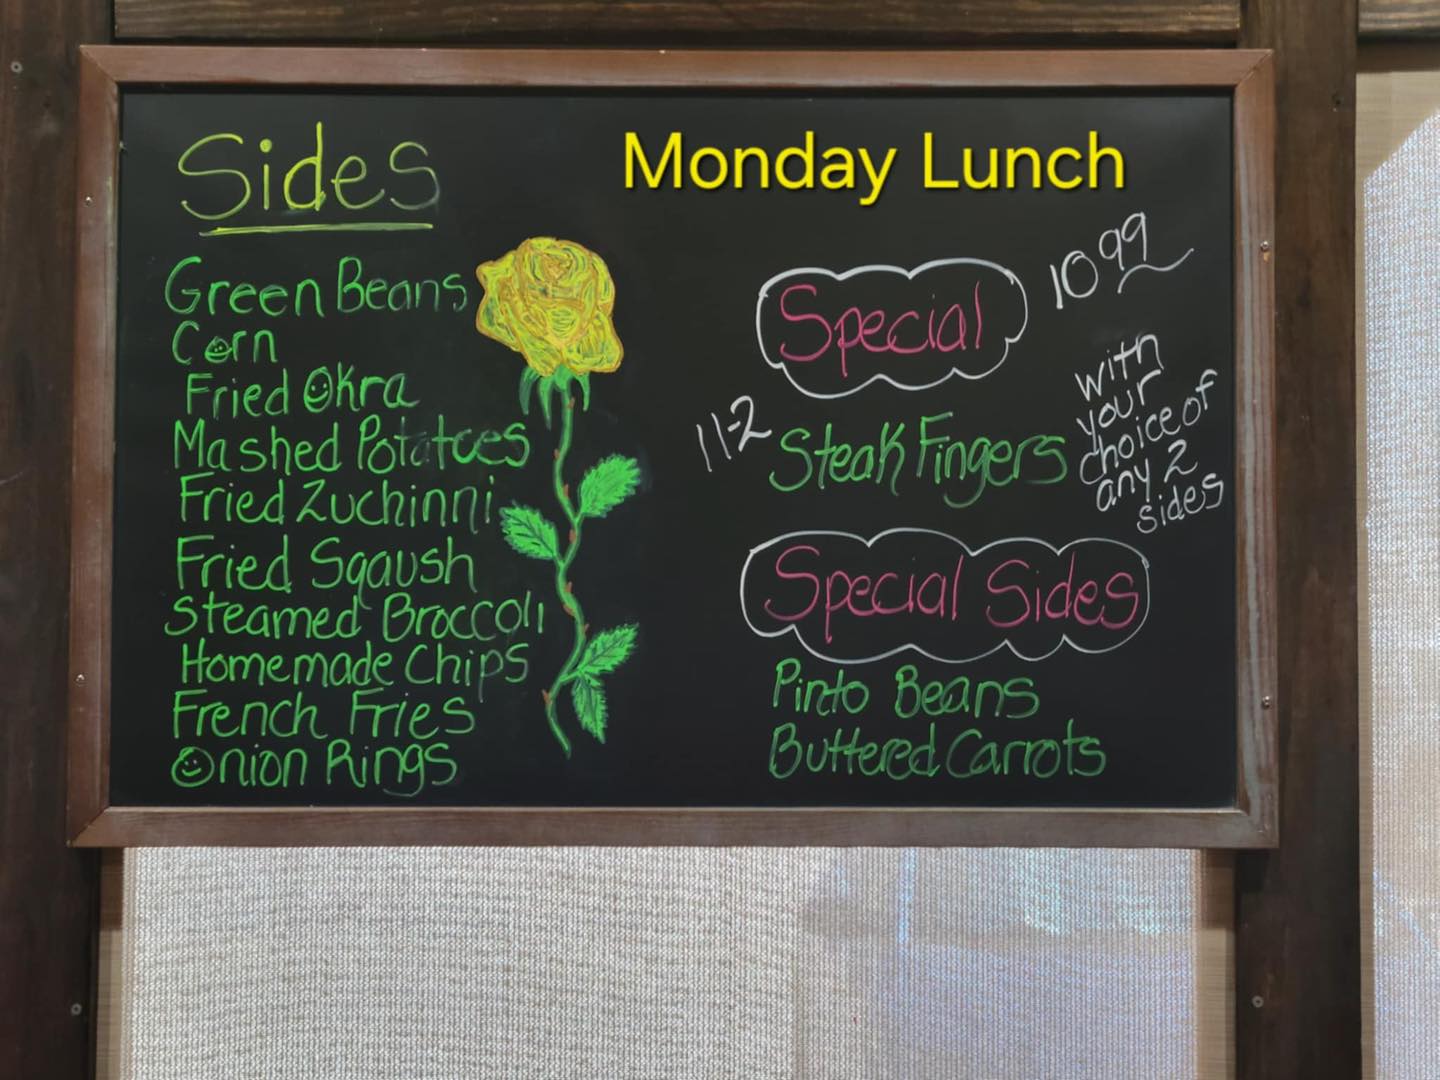 Sides
Green Beans
Corn
Fried Okra
Mashed Potatoes
Fried Zuchinni
Fried Sqaush
Steamed Broccoli
Homemade Chips
French Fries
Onion Rings
Monday Lunch
Special
10 99
11-2
Steak Fingers
with
your
choice of
any 2
sides
Special Sides
Pinto Beans
Buttered Carrots